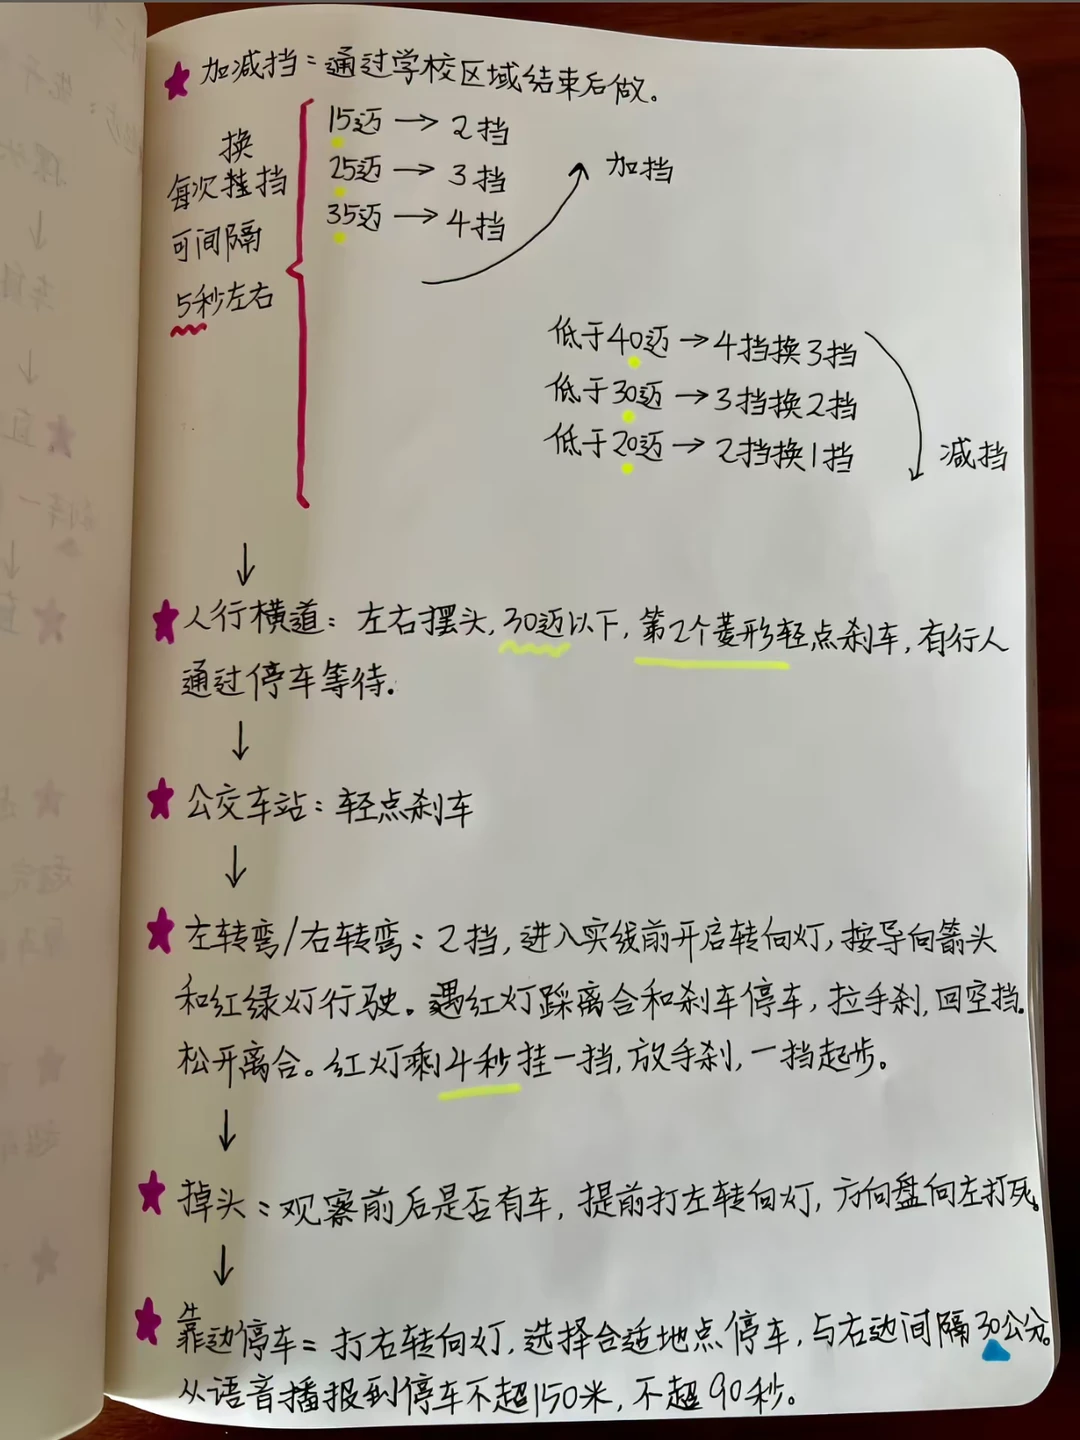 加减挡：通过学校区域结束后做。
换
每次挂挡
可间隔
5秒左右
15迈→2挡
25迈→3挡
35迈→4挡
加挡
低于40迈→4挡换3挡
低于30迈→3挡换2挡
低于20迈→2挡换1挡
减挡
↓
人行横道：左右摆头，30迈以下，第2个菱形轻点刹车，有行人
通过停车等待.
↓
公交车站：轻点刹车
↓
左转弯/右转弯：2挡，进入实线前开启转向灯，按导向箭头
和红绿灯行驶。遇红灯踩离合和刹车停车，拉手刹，回空挡.
松开离合。红灯剩4秒挂一挡，放手刹，一挡起步。
↓
掉头：观察前后是否有车，提前打左转向灯，方向盘向左打死。
↓
靠边停车=打右转向灯，选择合适地点停车，与右边间隔30公分。
从语音播报到停车不超150米，不超90秒。